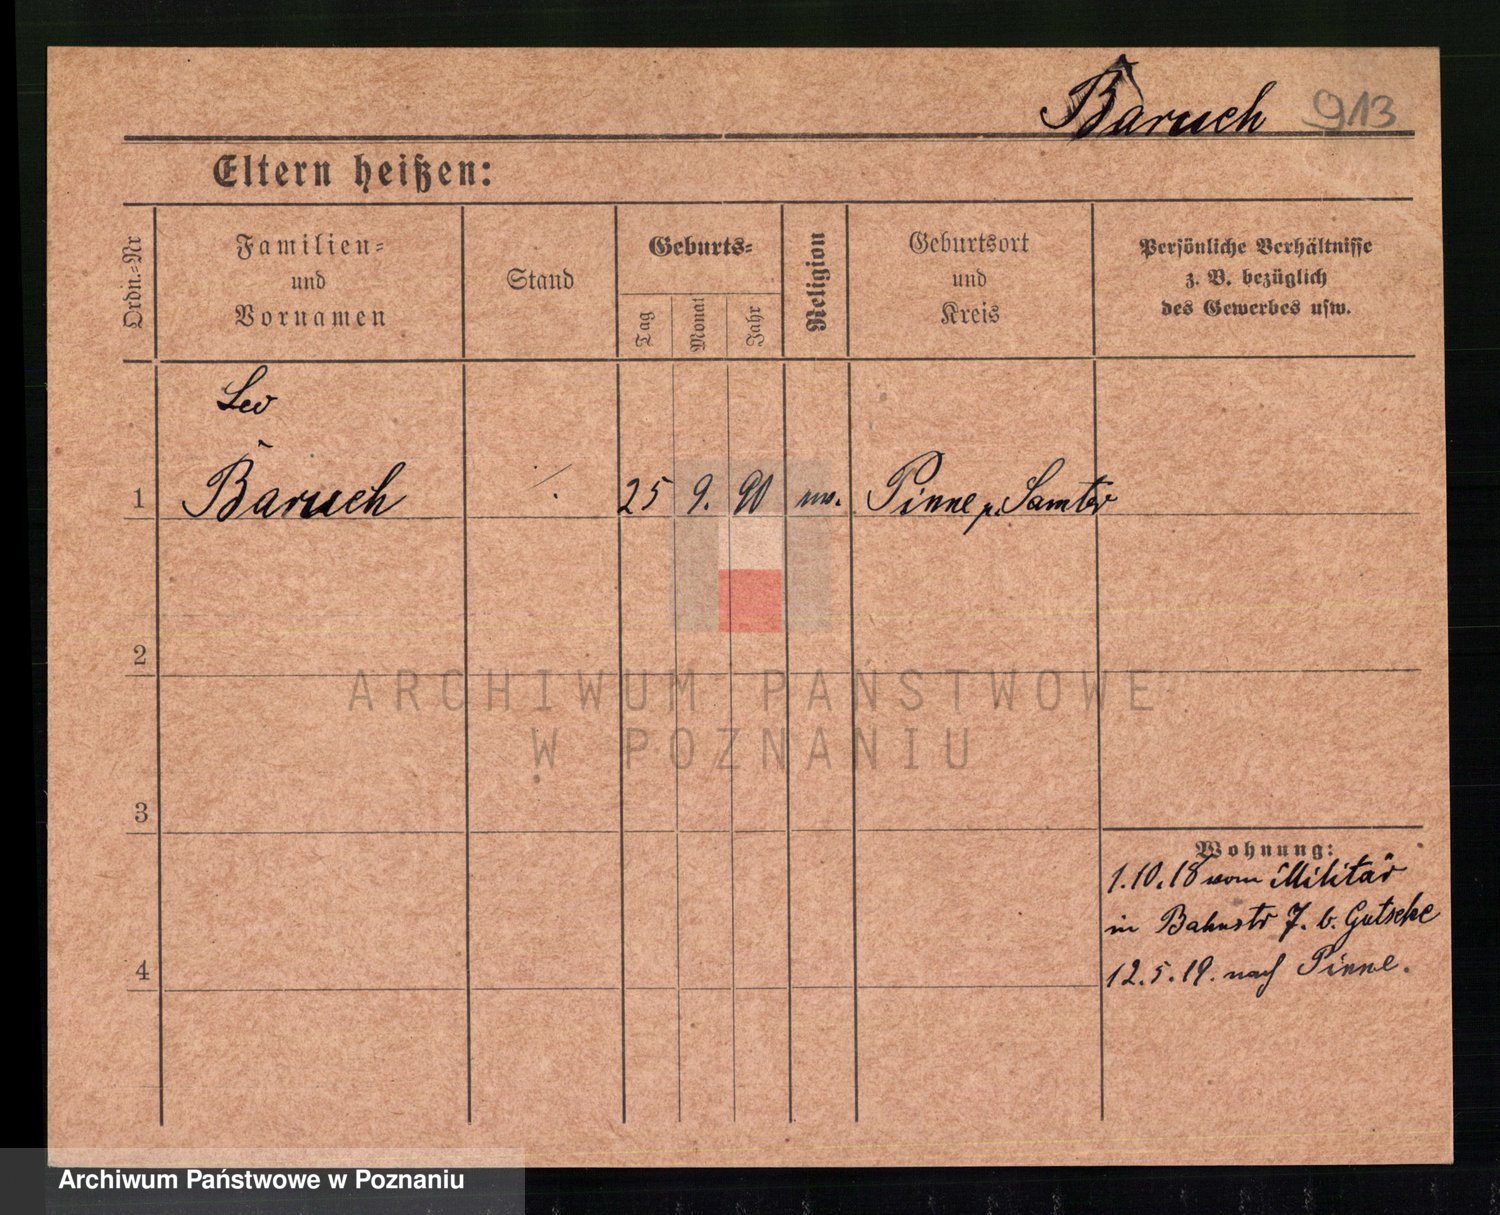 Baruch 913
Eltern heißen:
Ordn.=Nr
Familien=
und
Vornamen
Stand
Geburts=
Tag
Monat
Jahr
Religion
Geburtsort
und
Kreis
Persönliche Verhältnisse
z. B. bezüglich
des Gewerbes usw.
Leo
1 Baruch 25 9. 90 Pinne Samter
2
3
4
Wohnung:
1.10.18 vom Militär
in Bahnstr 7. b. Gutsche
12.5.19. nach Pinne.
ARCHIWUM PAŃSTWOWE
W POZNANIU
Archiwum Państwowe w Poznaniu